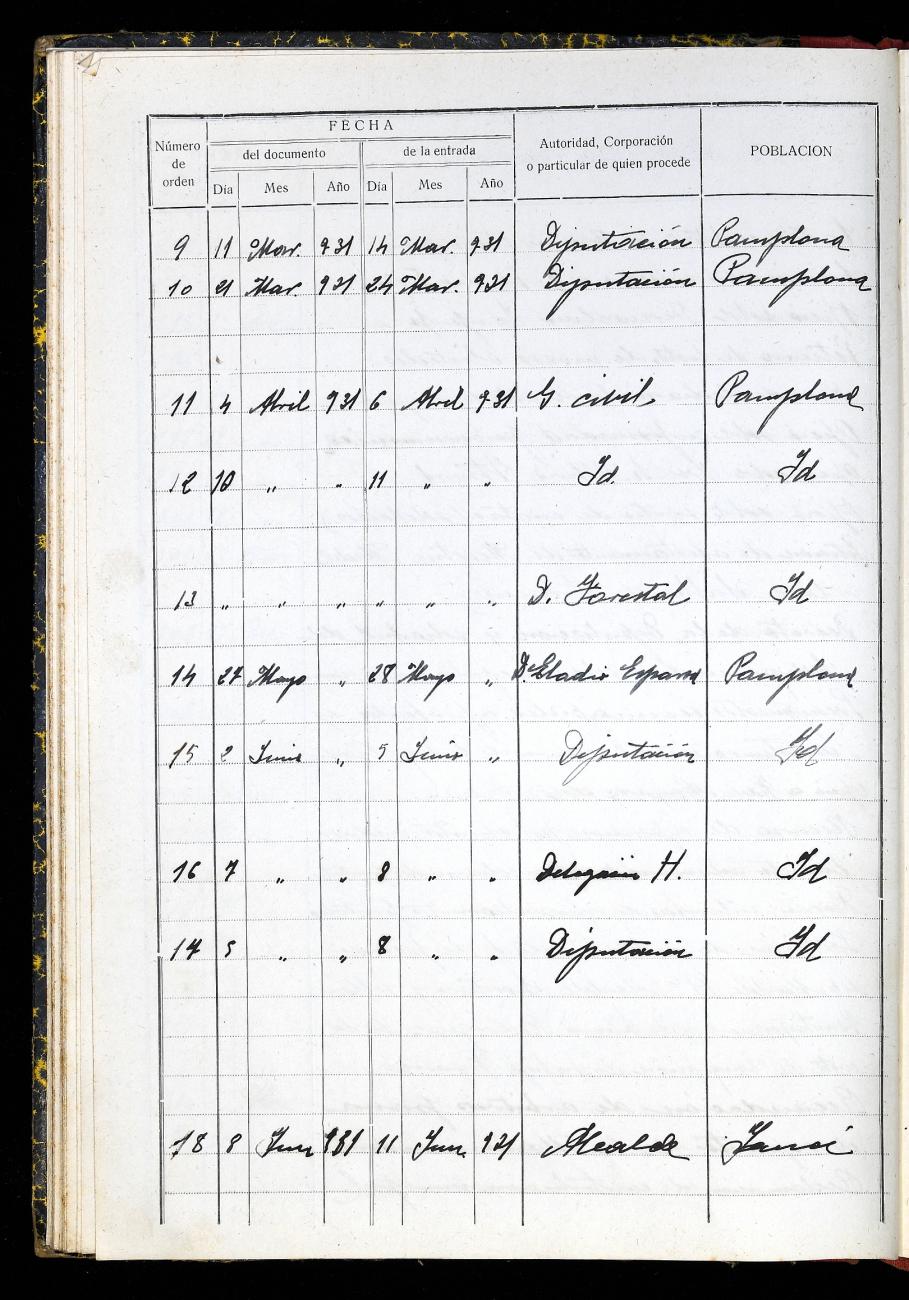 FECHA
Número de orden
del documento
de la entrada
Autoridad, Corporación o particular de quien procede
POBLACION
Día Mes Año Día Mes Año
9 11 Mar. 931 14 Mar. 931 Diputación Pamplona
10 21 Mar. 931 24 Mar. 931 Diputación Pamplona
11 4 Abril 931 6 Abril 931 G. civil Pamplona
12 10 " " 11 " " Id. Id
13 " " " " " " D. Forestal Id
14 27 Mayo " 28 Mayo " D. Eladio Esparza Pamplona
15 2 Junio " 5 Junio " Diputación Id
16 7 " " 8 " " Delegación H. Id
17 5 " " 8 " " Diputación Id
18 8 Jun 931 11 Jun. 931 Alcalde